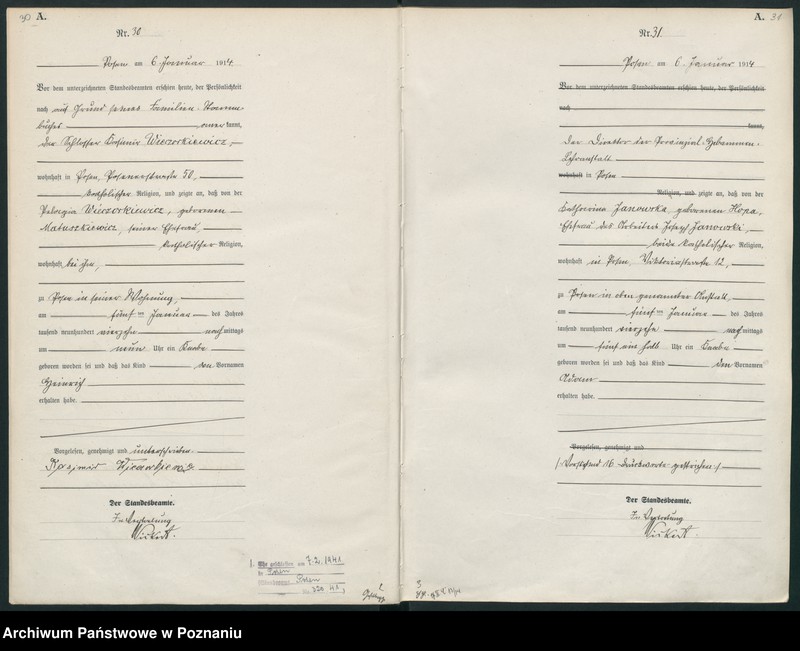 30 A.
Nr. 30
Posen am 6 Januar 1914.
Vor dem unterzeichneten Standesbeamten erschien heute, der Persönlichkeit
nach auf Grund seines Familien-Stamm-
buches anerkannt,
der Schlosser Kasimir Wieczorkiewicz,
wohnhaft in Posen, Posenerstraße 50,
katholischer Religion, und zeigte an, daß von der
Pelagia Wieczorkiewicz, geborenen
Matuszkiewicz, seiner Ehefrau,
katholischer Religion,
wohnhaft bei ihm,
zu Posen in seiner Wohnung,
am fünften Januar des Jahres
tausend neunhundert vierzehn nachmittags
um neun Uhr ein Knabe
geboren worden sei und daß das Kind den Vornamen
Heinrich
erhalten habe.
Vorgelesen, genehmigt und unterschrieben
Kazimir Wieczorkiewicz
Der Standesbeamte.
In Vertretung
A. 31
Nr. 31
Posen am 6 Januar 1914
Vor dem unterzeichneten Standesbeamten erschien heute, der Persönlichkeit
nach
kannt,
Der Direktor der Provinzial-Hebammen-
Lehranstalt
wohnhaft in Posen
Religion, und zeigte an, daß von der
Katharina Janowska geborenen Hopa,
Ehefrau des Arbeiters Joseph Janowski,
beide katholischer Religion,
wohnhaft in Posen, Viktoriastraße 12,
zu Posen in oben genannter Anstalt,
am fünften Januar des Jahres
tausend neunhundert vierzehn nachmittags
um fünf ein halb Uhr ein Knabe
geboren worden sei und daß das Kind den Vornamen
Adam
erhalten habe.
Vorgelesen, genehmigt und
(Vorstehend 16 Druckworte gestrichen.)
Der Standesbeamte.
In Vertretung
Archiwum Państwowe w Poznaniu